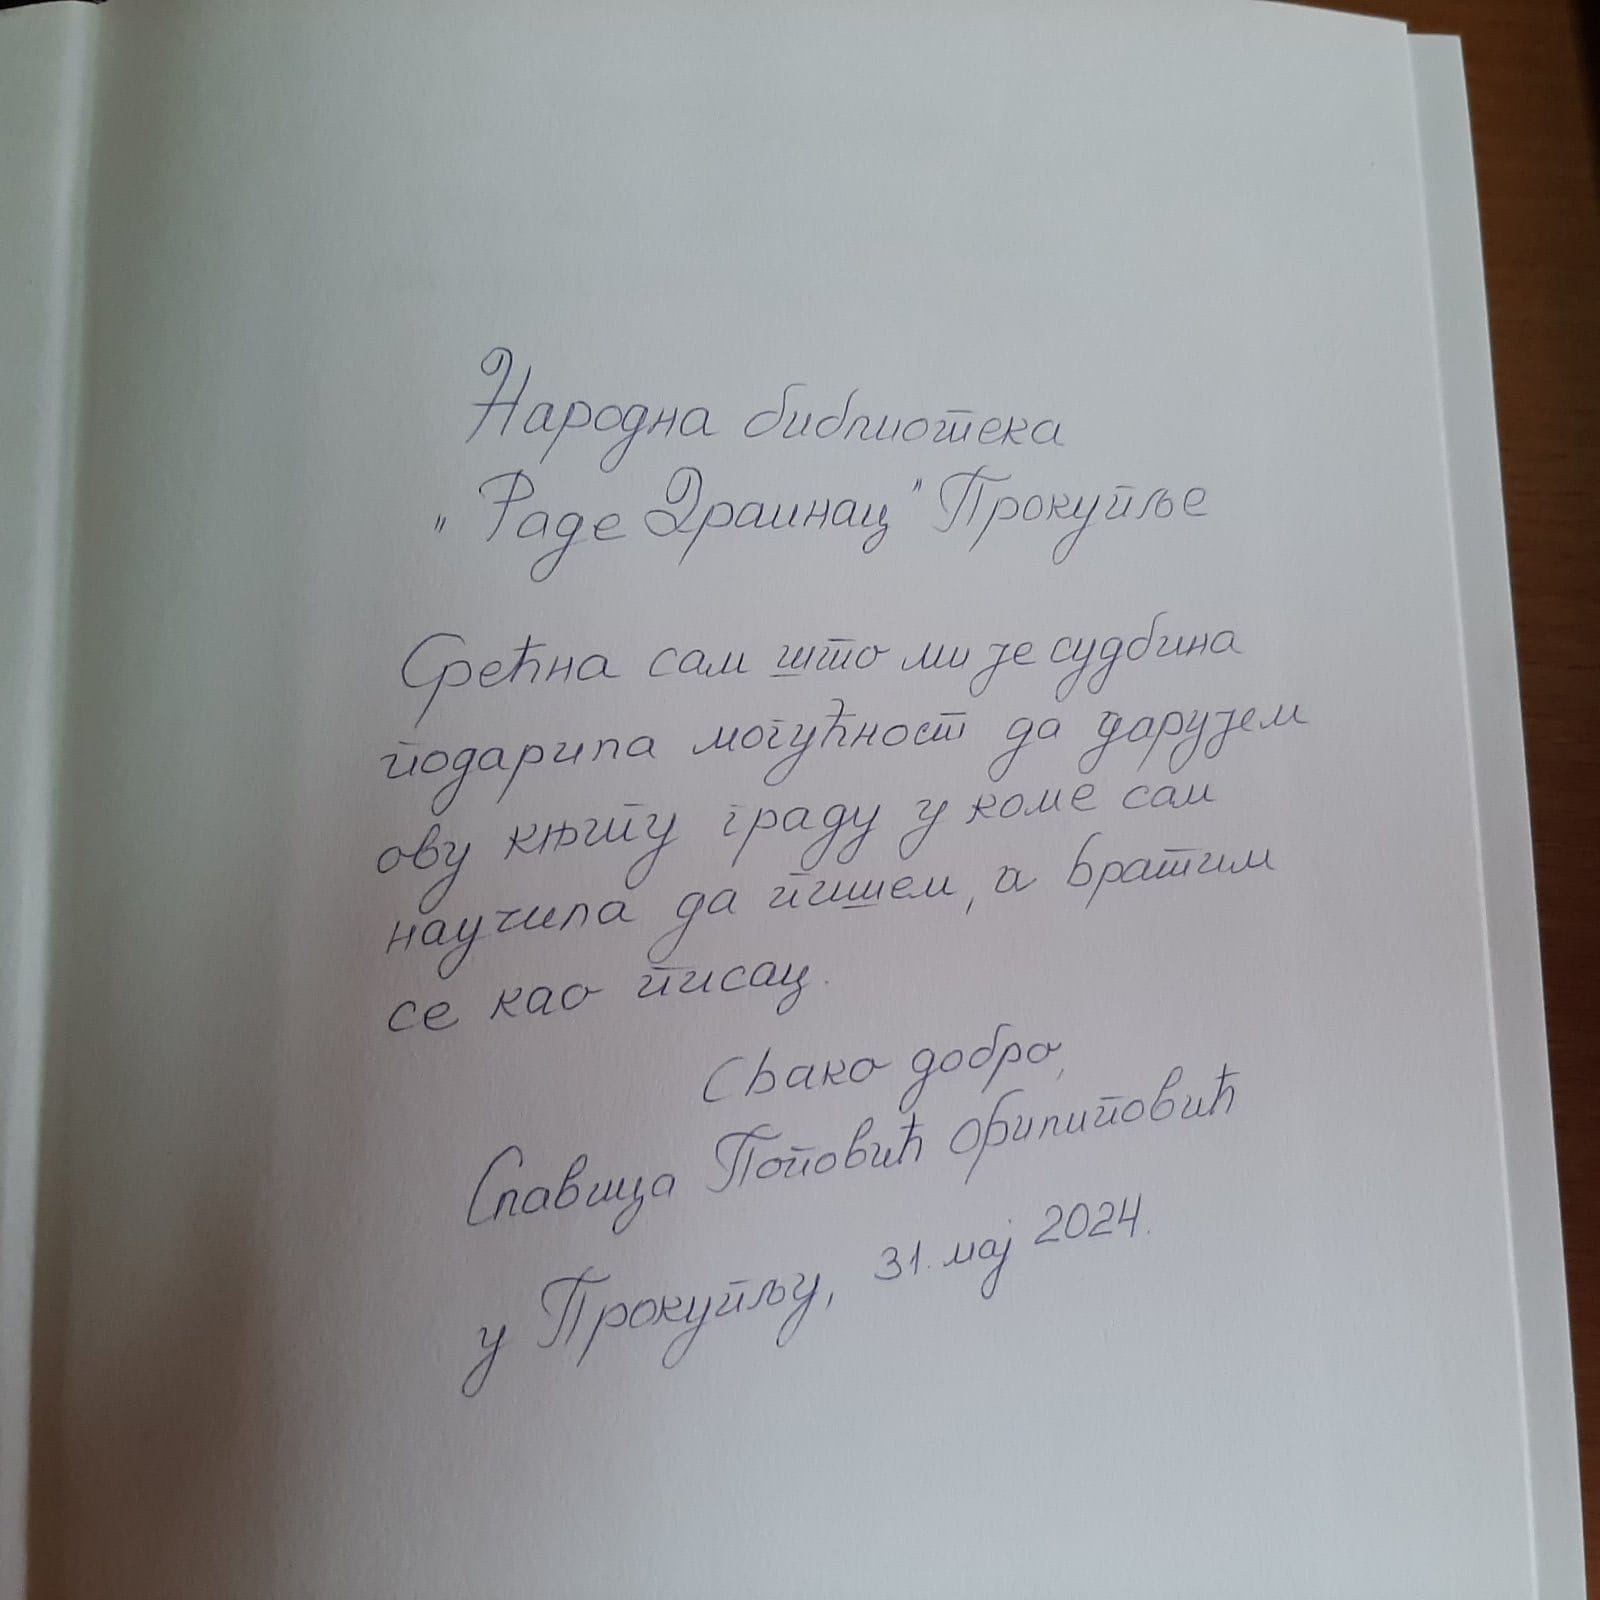 Народна библиотека
„Раде Драинац" Прокупље
Срећна сам што ми је судбина
подарила могућност да дарујем
ову књигу граду у коме сам
научила да пишем, а вратим
се као писац.
Свако добро,
Славица Поповић Филиповић
у Прокупљу, 31. мај 2024.